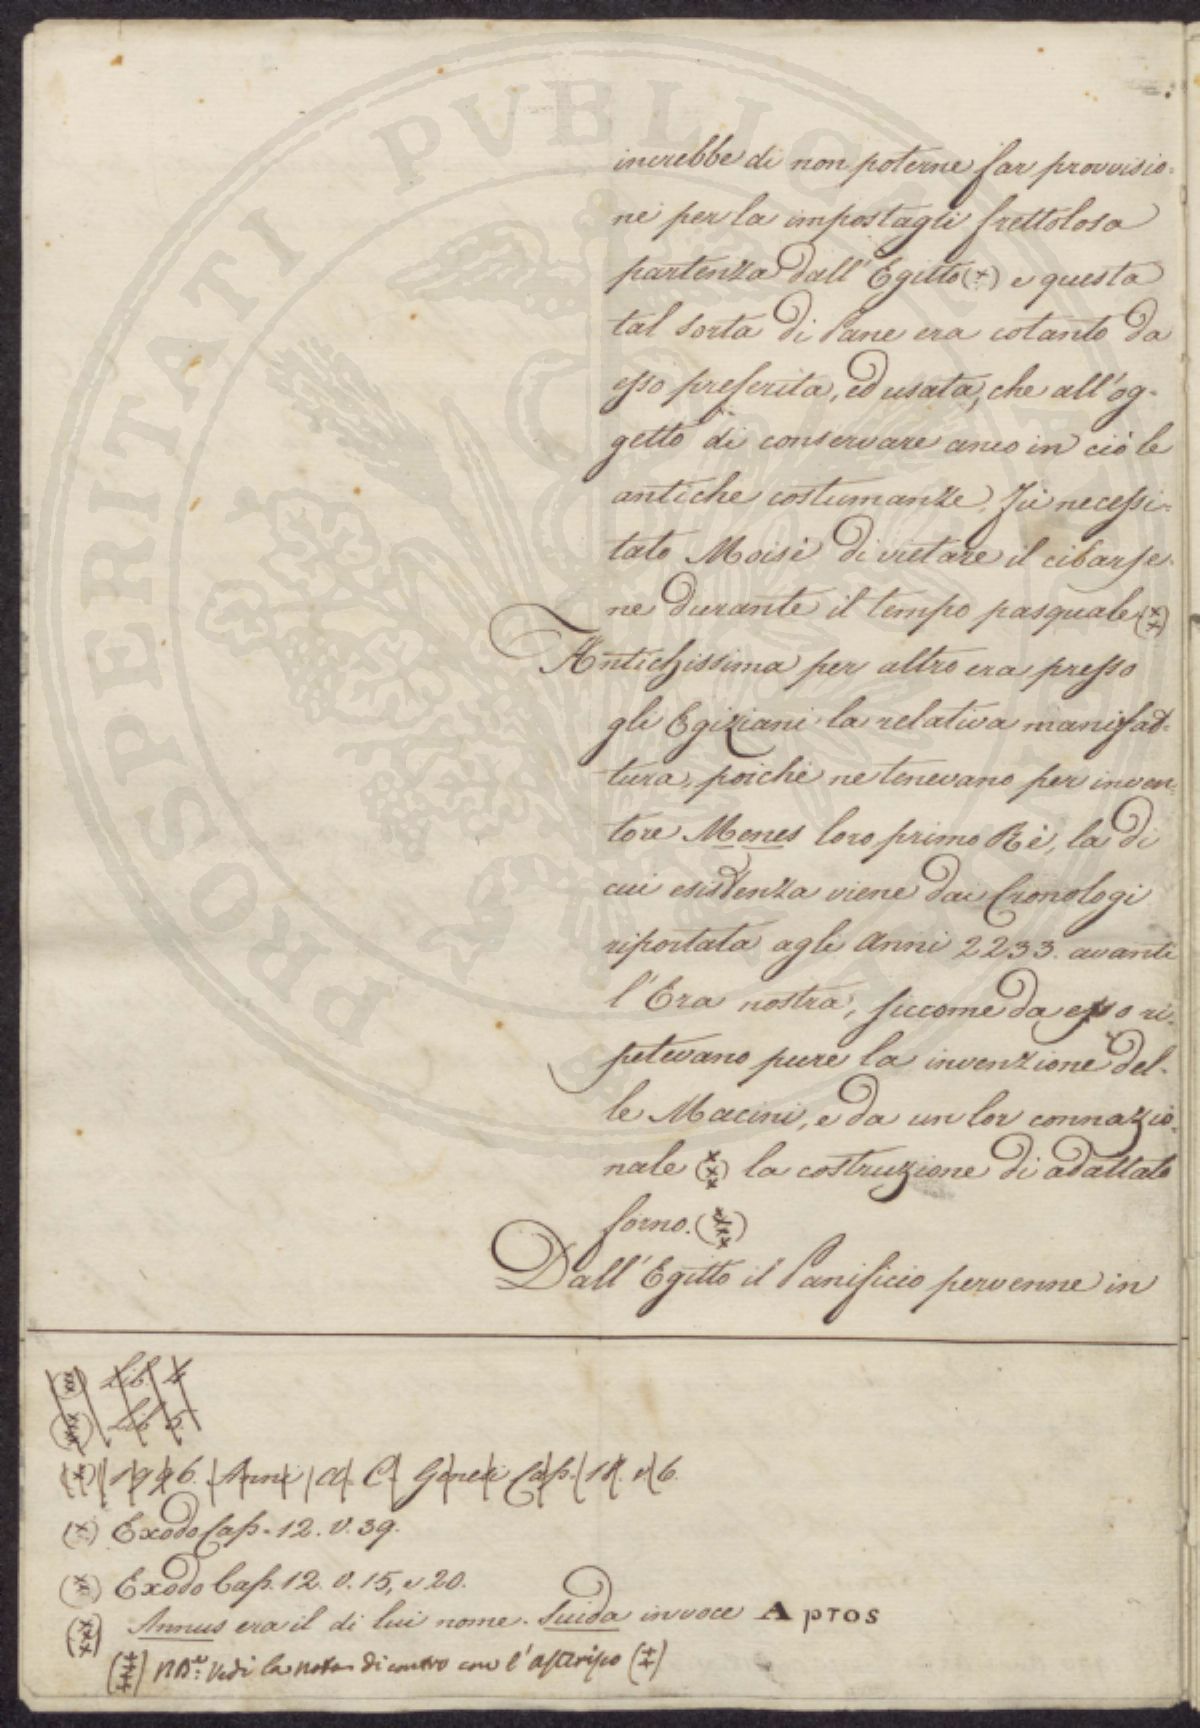 PROSPERITATI PVBLICAE
increbbe di non poterne far provvisio-
ne per la impostagli frettolosa
partenza dall'Egitto (x) e questa
tal sorta di Pane era cotanto da
esso preferita, ed usata, che all'og-
getto di conservare anco in ciò le
antiche costumanze, fu necessi-
tato Moisè di vietare il cibarse-
ne durante il tempo pasquale (xx)
Antichissima per altro era presso
gli Egiziani la relativa manifat-
tura, poichè ne tenevano per inven-
tore Menes loro primo Rè, la di
cui esistenza viene dai Cronologi
riportata agli Anni 2233. avanti
l'Era nostra, siccome da esso ri-
petevano pure la invenzione del-
le Macini, e da un lor connazio-
nale (xxx) la costruzione di adattato
forno. (xxxx)
Dall'Egitto il Panificio pervenne in
(xxx) Lib. 4
(xxxx) Lib. 5
(x) 1996. Anni a. C. Genesi Cap. 18. v. 6.
(x) Exodo Cap. 12. v. 39.
(xx) Exodo Cap. 12. v. 15, e 20.
(xxx) Annus era il di lui nome. Suida in voce Αρτος
(xxxx) NB.e: Vedi la nota di contro con l'asterisco (xx)